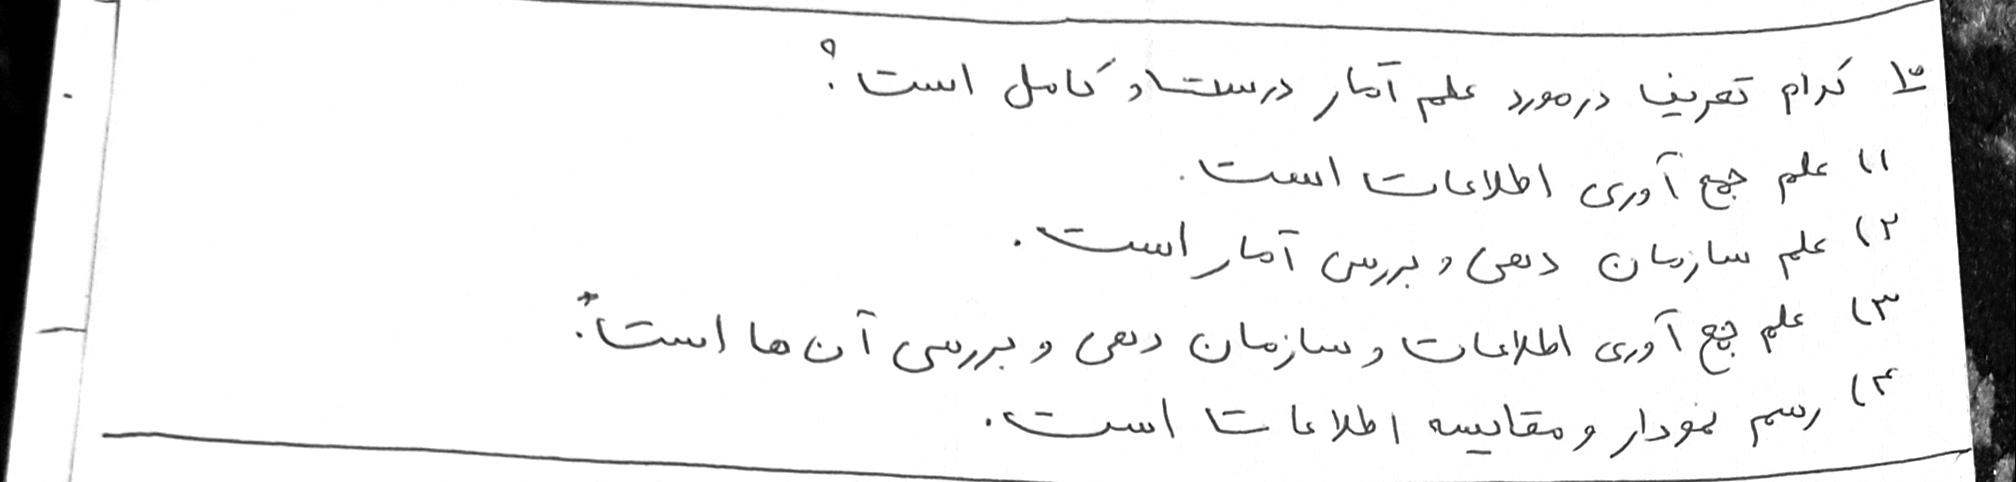 ۱۰ کدام تعریف در مورد علم آمار درست و کامل است؟
۱) علم جمع آوری اطلاعات است.
۲) علم سازمان دهی و بررسی آمار است.
۳) علم جمع آوری اطلاعات و سازمان دهی و بررسی آن ها است.*
۴) رسم نمودار و مقایسه اطلاعات است.